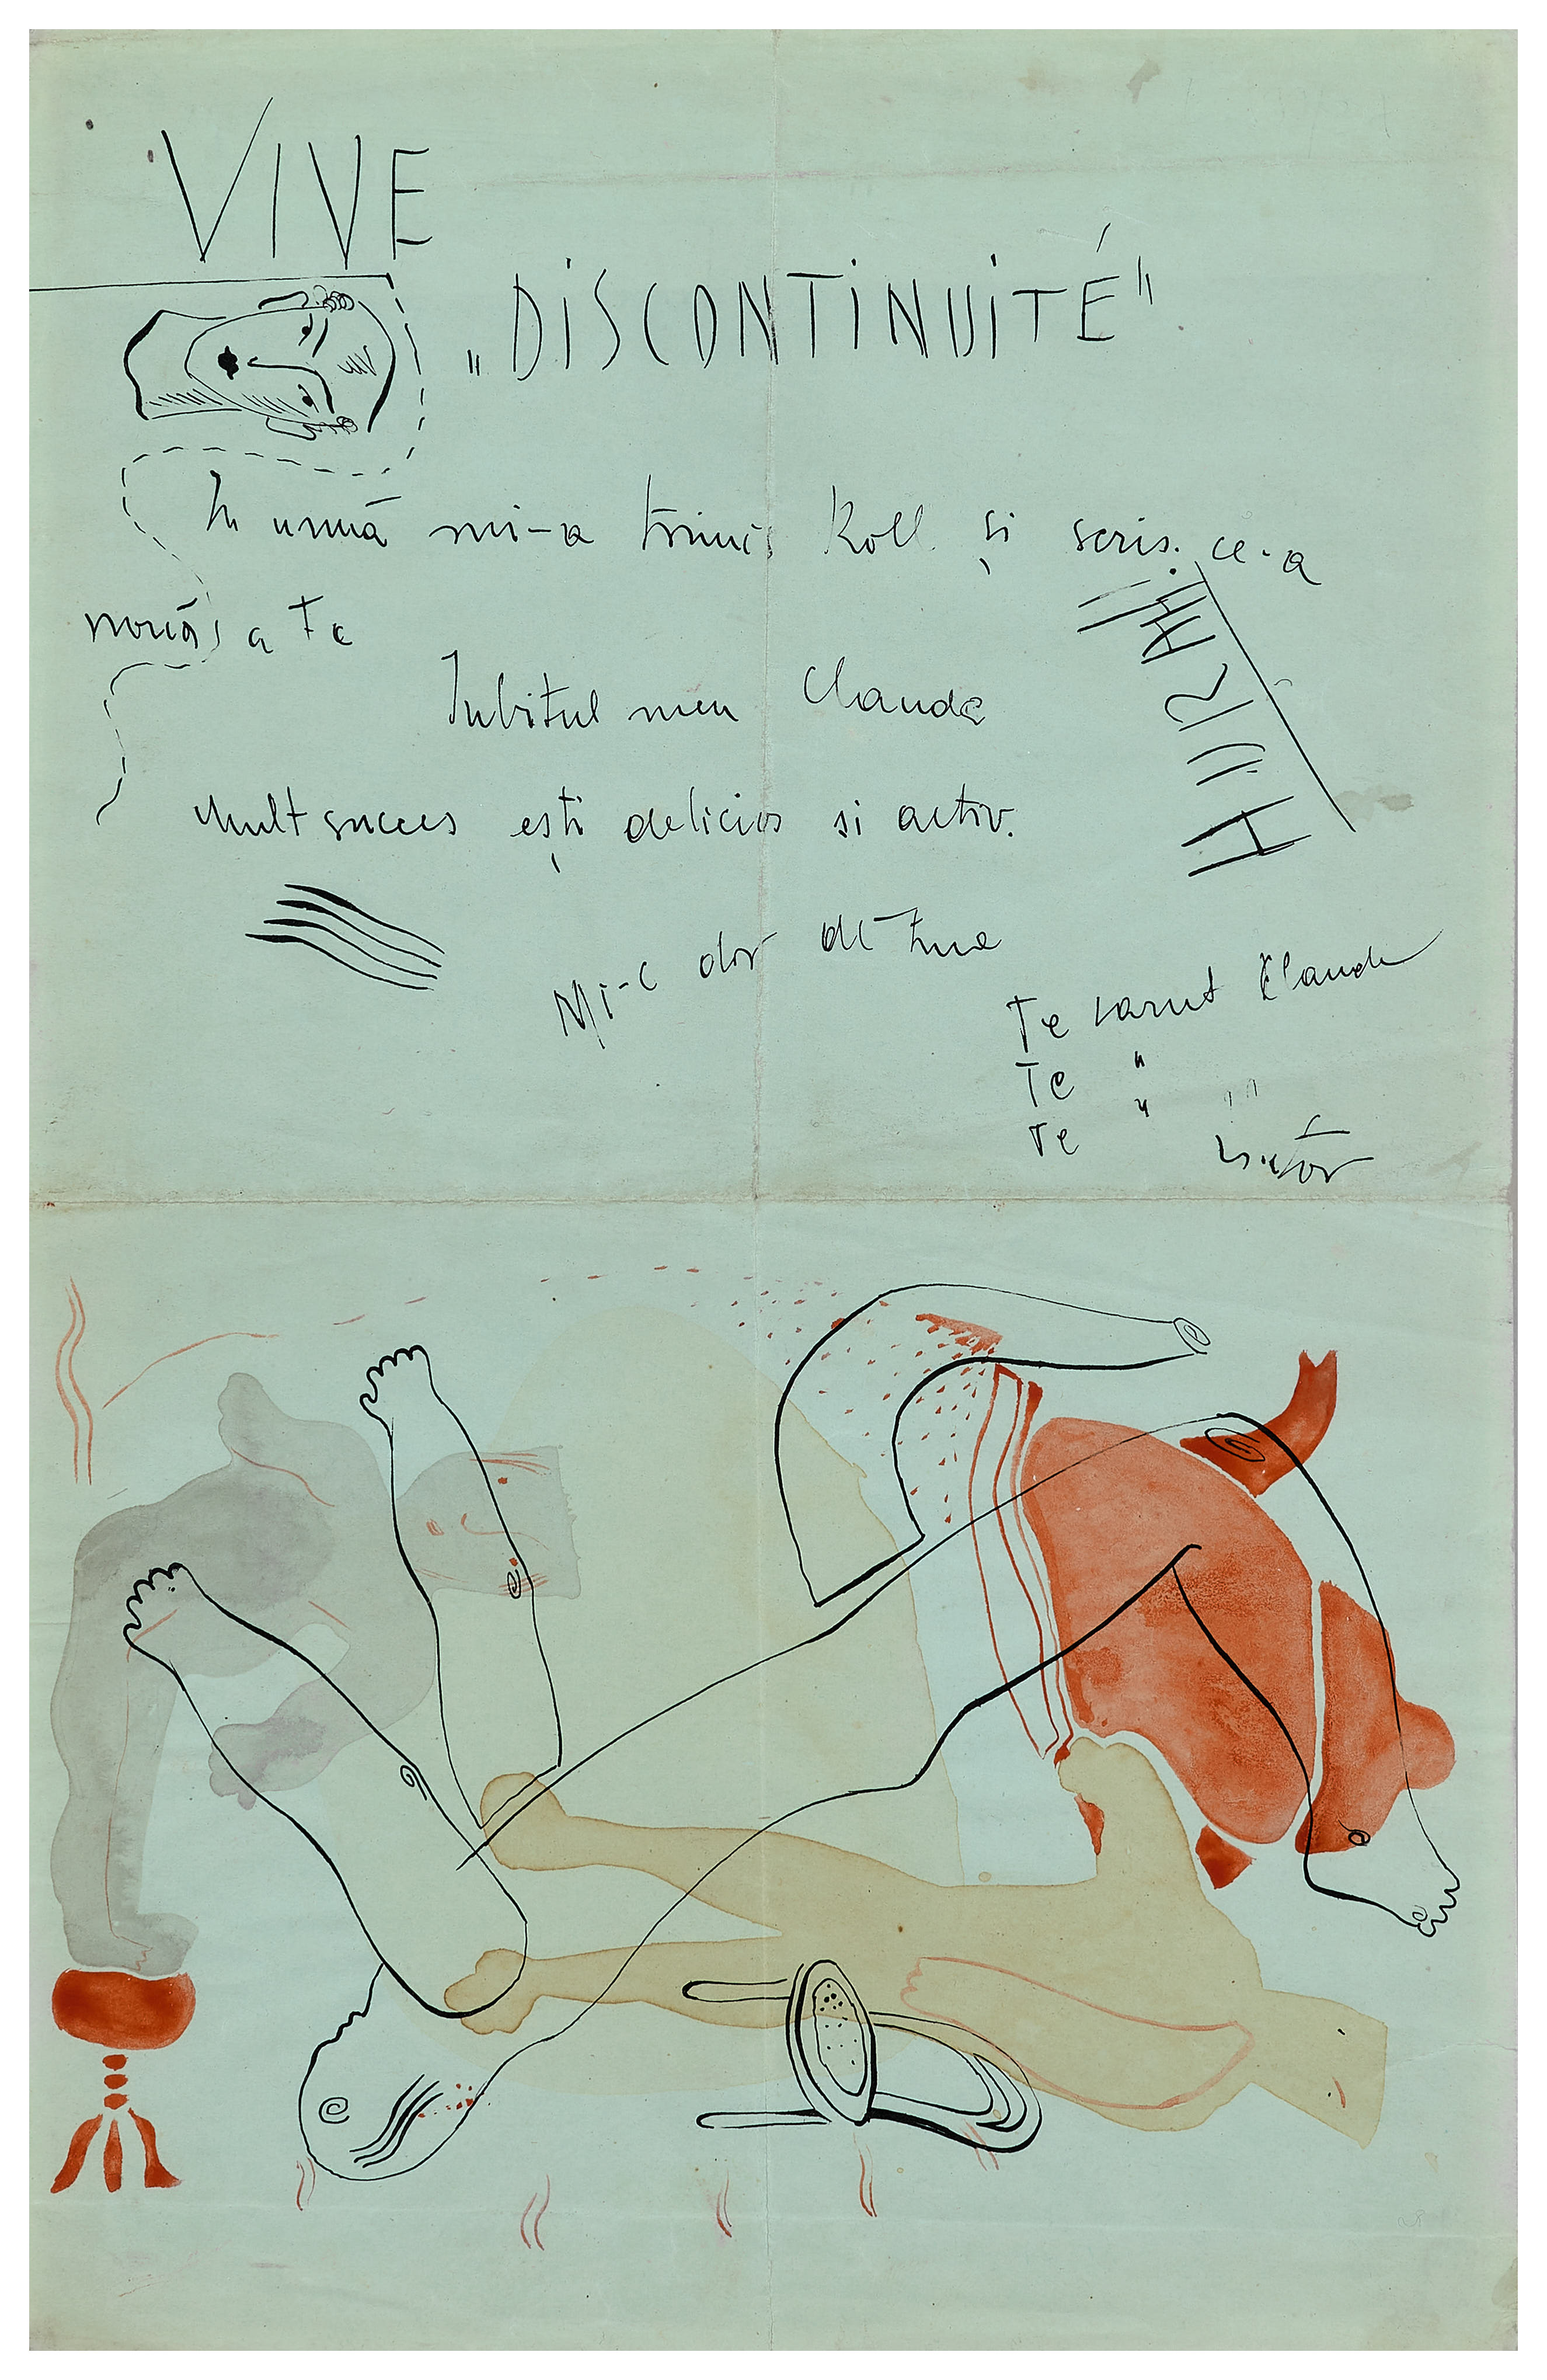 VIVE
„DISCONTINUITÉ"
In urmă mi-a trimis Koll. și scris. ce-a
a te
Iubitul meu Claude
HURAH!
Mult succes ești delicios si activ.
Mi-e dor de tine
Te sarut Claude
Te "
Te " " "
Victor